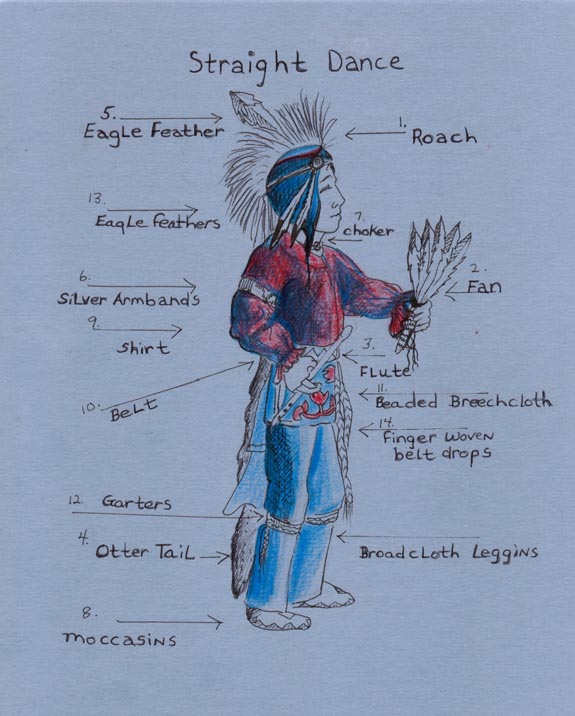 Straight Dance
5.
Eagle Feather
1.
Roach
13.
Eagle Feathers
7.
choker
2.
Fan
6.
Silver Armbands
9.
Shirt
3.
Flute
10. Belt
11.
Beaded Breechcloth
14.
Finger Woven
belt drops
12. Garters
4.
Otter Tail
Broadcloth Leggins
8.
moccasins